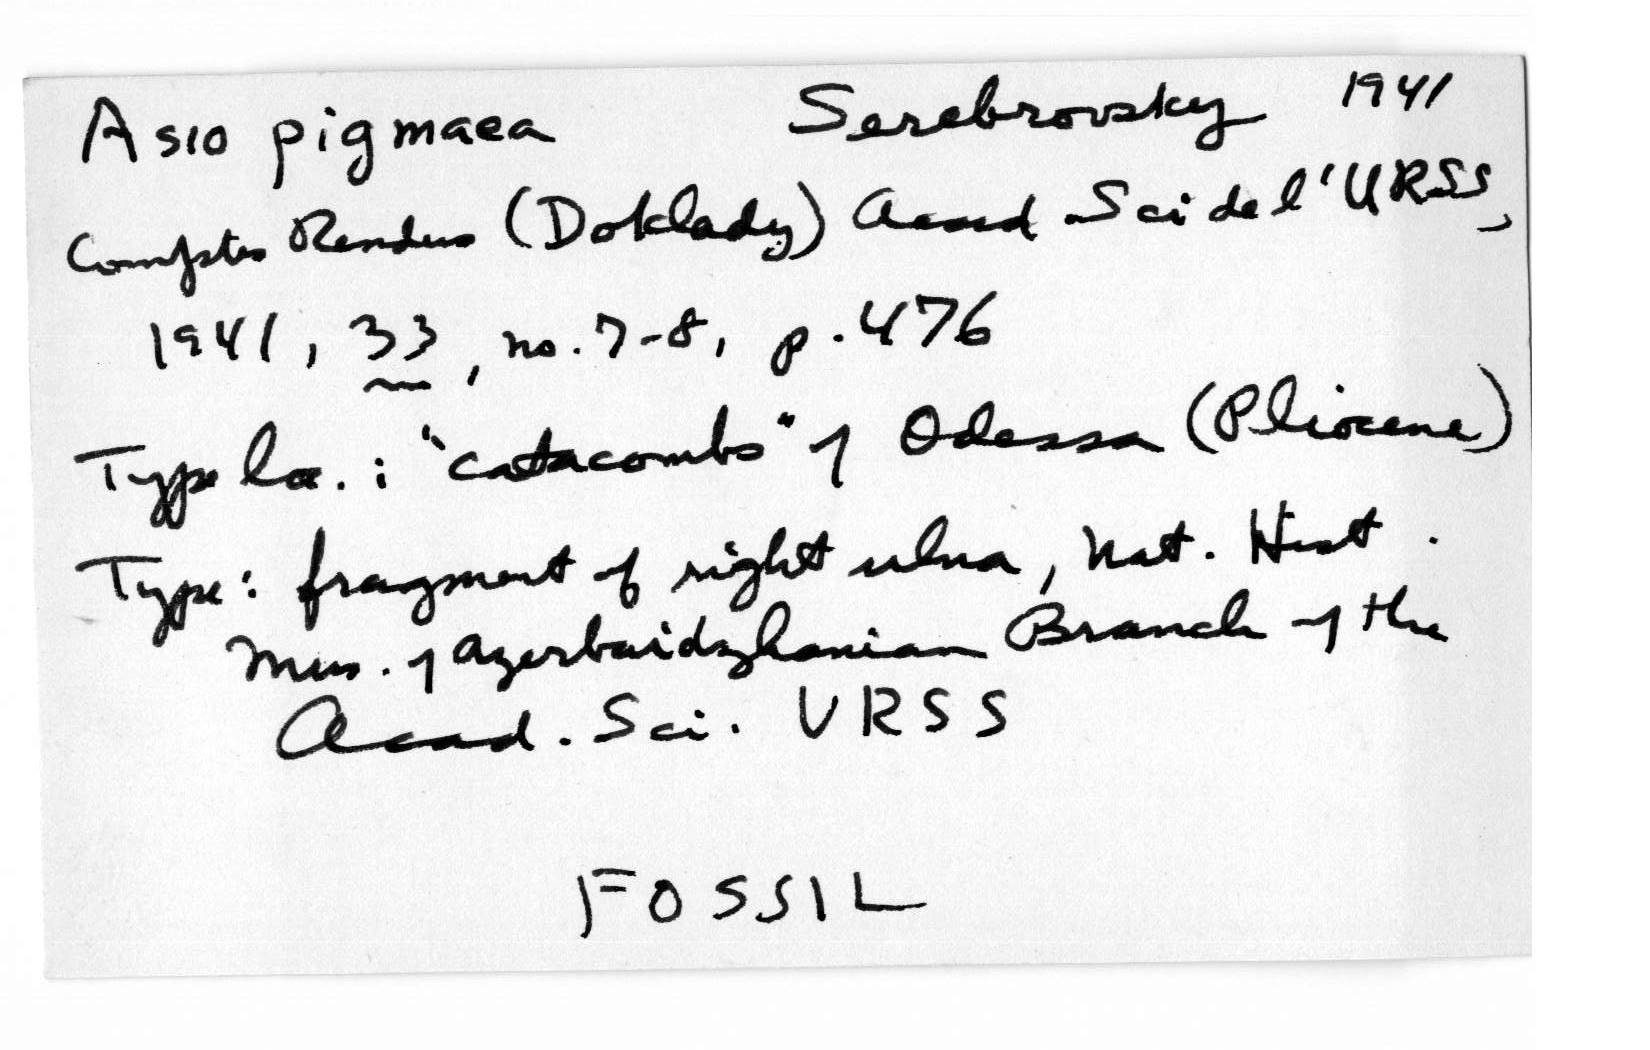 Asio pigmaea Serebrovsky 1941
Comptes Rendus (Doklady) Acad Sci de l'URSS,
1941, 33, no. 7-8, p. 476
Type loc. : "catacombs" of Odessa (Pliocene)
Type: fragment of right ulna, Nat. Hist.
Mus. of Azerbaidzhanian Branch of the
Acad. Sci. URSS
FOSSIL